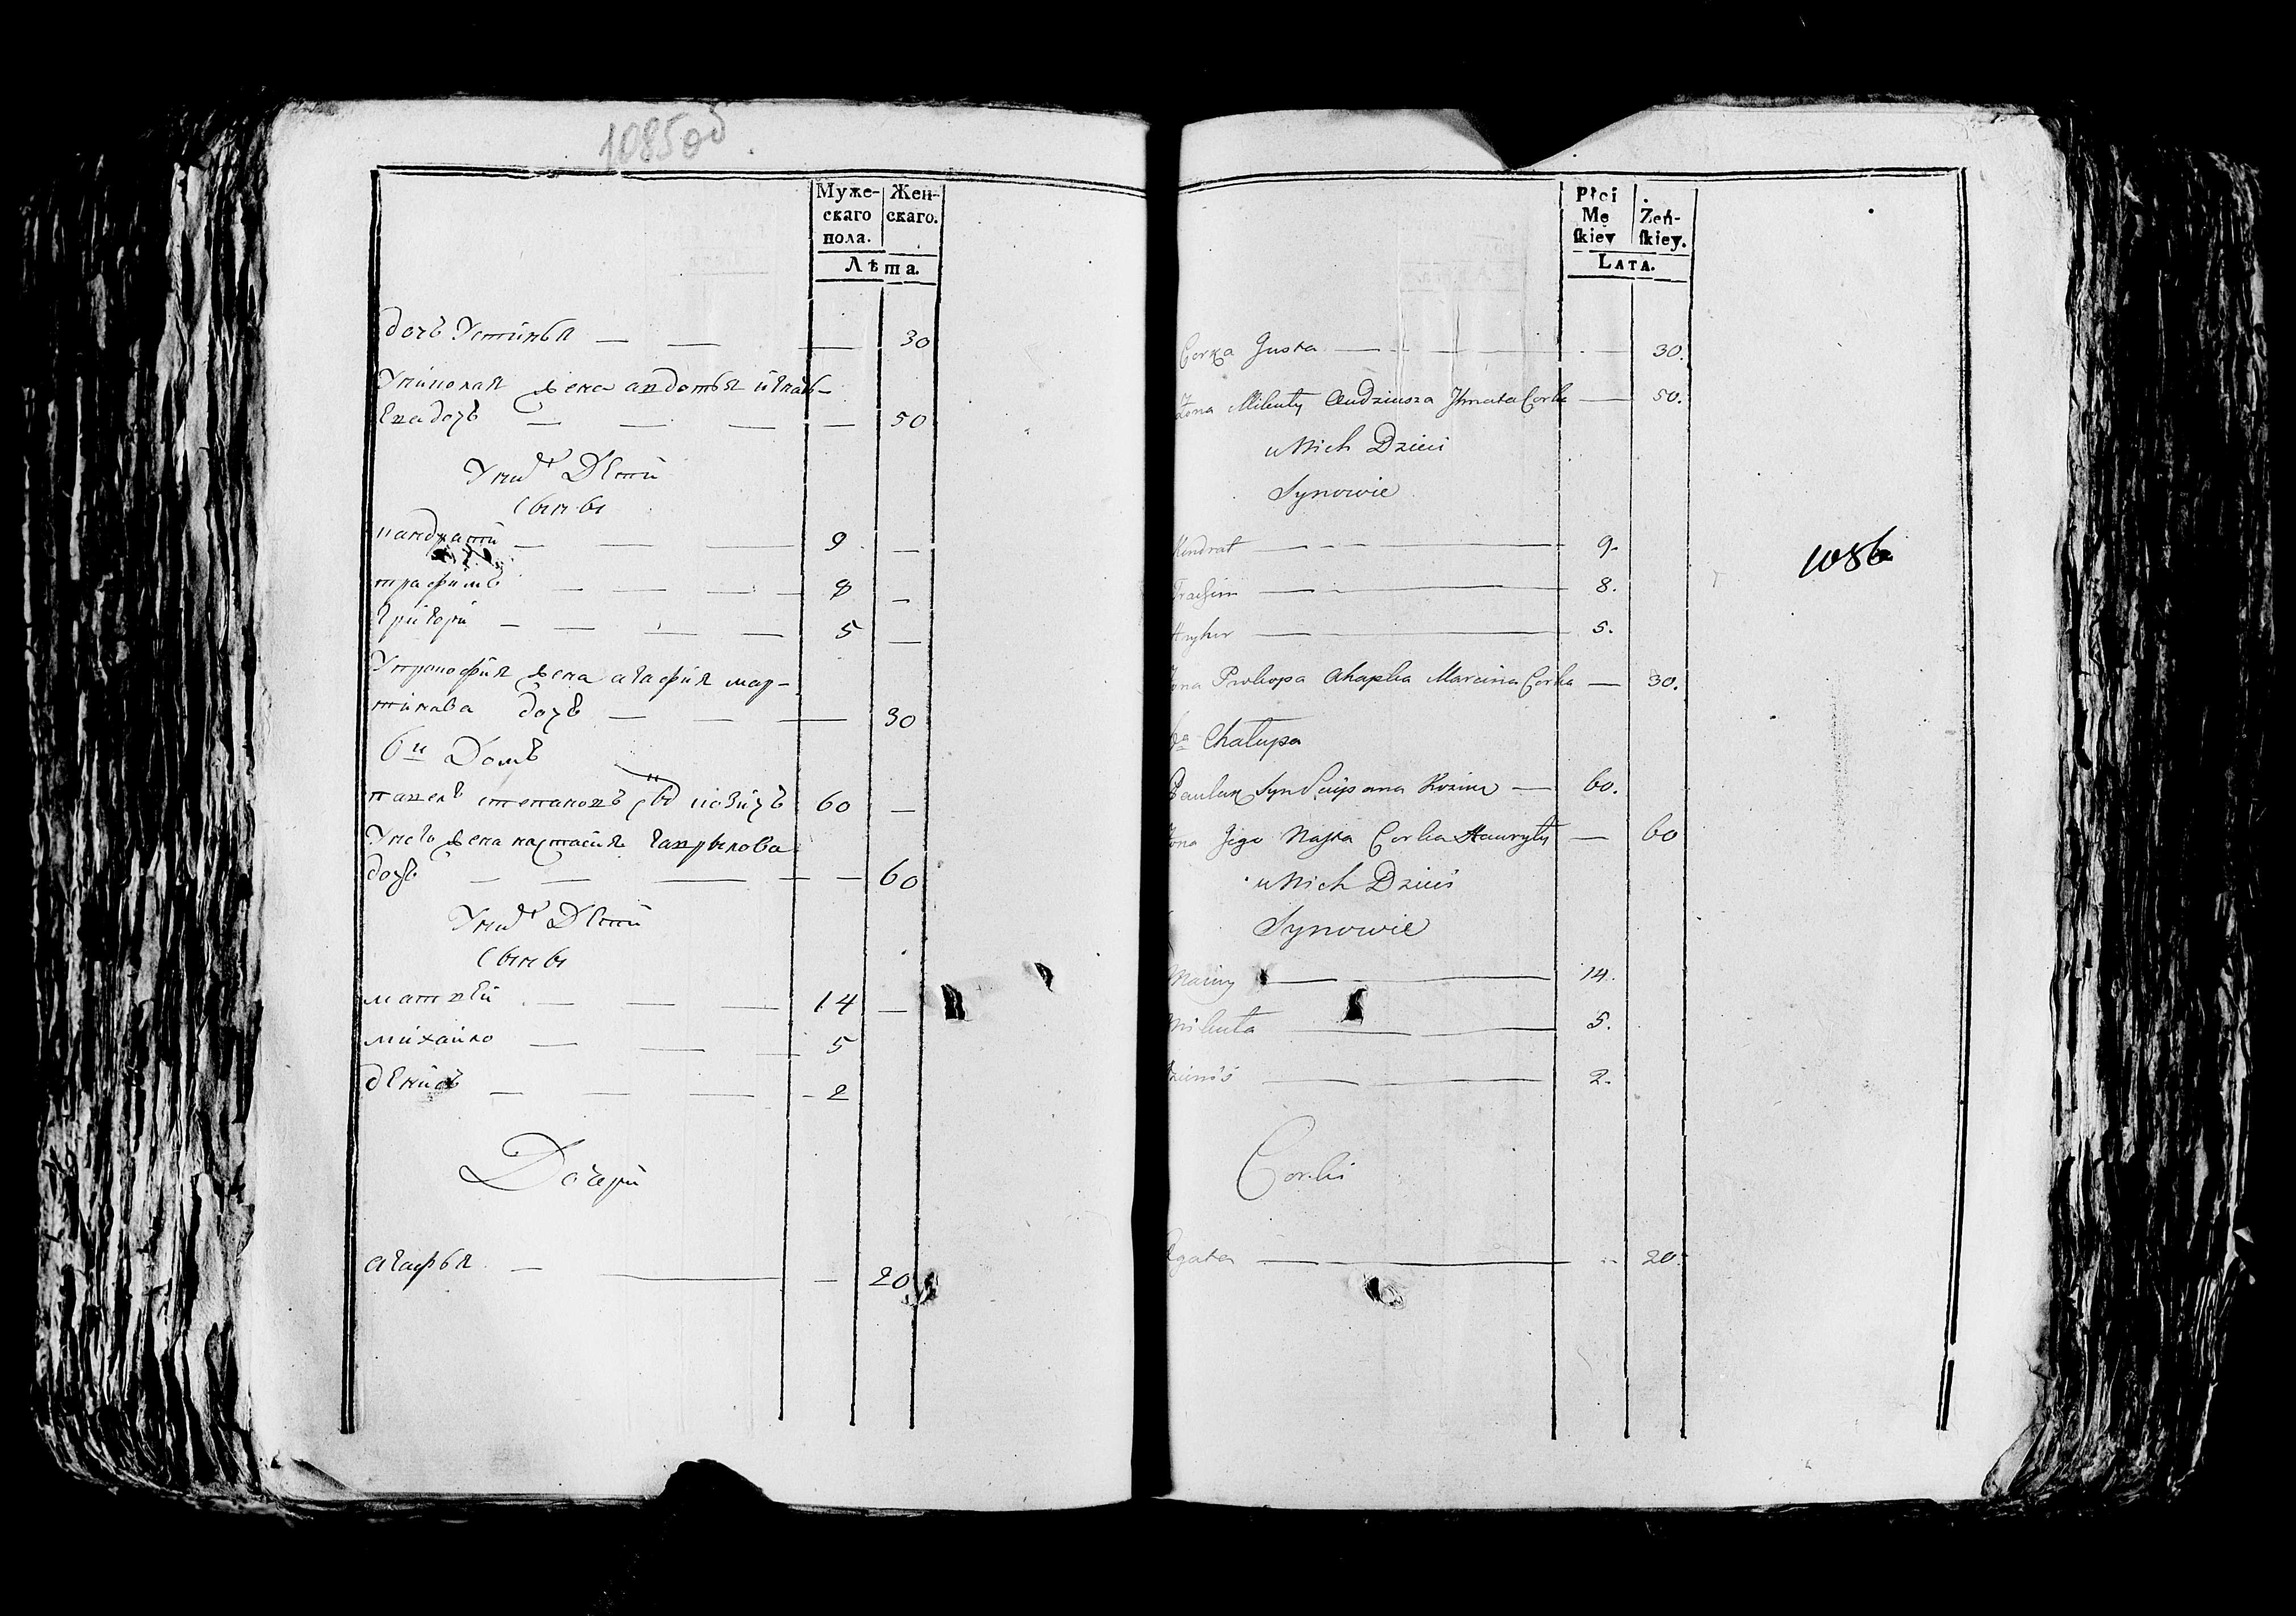 1085об
Муже- Жен-
скаго скаго.
пола.
Лѣта.
дочь Устинья — — — 30
Унiколая жена авдотья игнать-
ева дочь — — — — 50
Унихъ Дети
Сыны
кандрати — — — 9 —
трафимъ — — — 8 —
Григори — — — 5 —
Упрокофия жена агафия мар-
тинава дочь — — — 30
6й Домъ
павелъ степановъ сынъ козичъ 60 —
Унего жена настасия гаврилова
дочь — — — — — 60
Унихъ Дети
Сыны
матвей — — — 14 —
михайло — — — 5
денисъ — — — 2
Дочери
агафья — — — 20
Płci
Mę Żeń-
ſkiey ſkiey.
LATA.
Corka Justa — — 30.
Żona Mikuły Audziusza Ihnata Corka — 50.
u Nich Dzieci
Synowie
Kindrat — 9.
Trachim — 8.
Hryhor — 5.
Żona Prokopa Ahapka Marcina Corka — 30.
6a Chałupa
Paulux Syn Sciepana Kozicz — 60.
Żona Jego Nasta Corka Hauryły — 60
u Nich Dzieci
Synowie
Maciey — 14.
Mikuła — 5.
Dzienis — 2.
Corki
Agata — 20.
1086